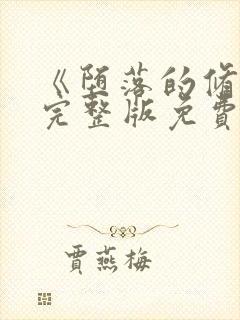 《堕落的脩
完整版免費
賈燕梅